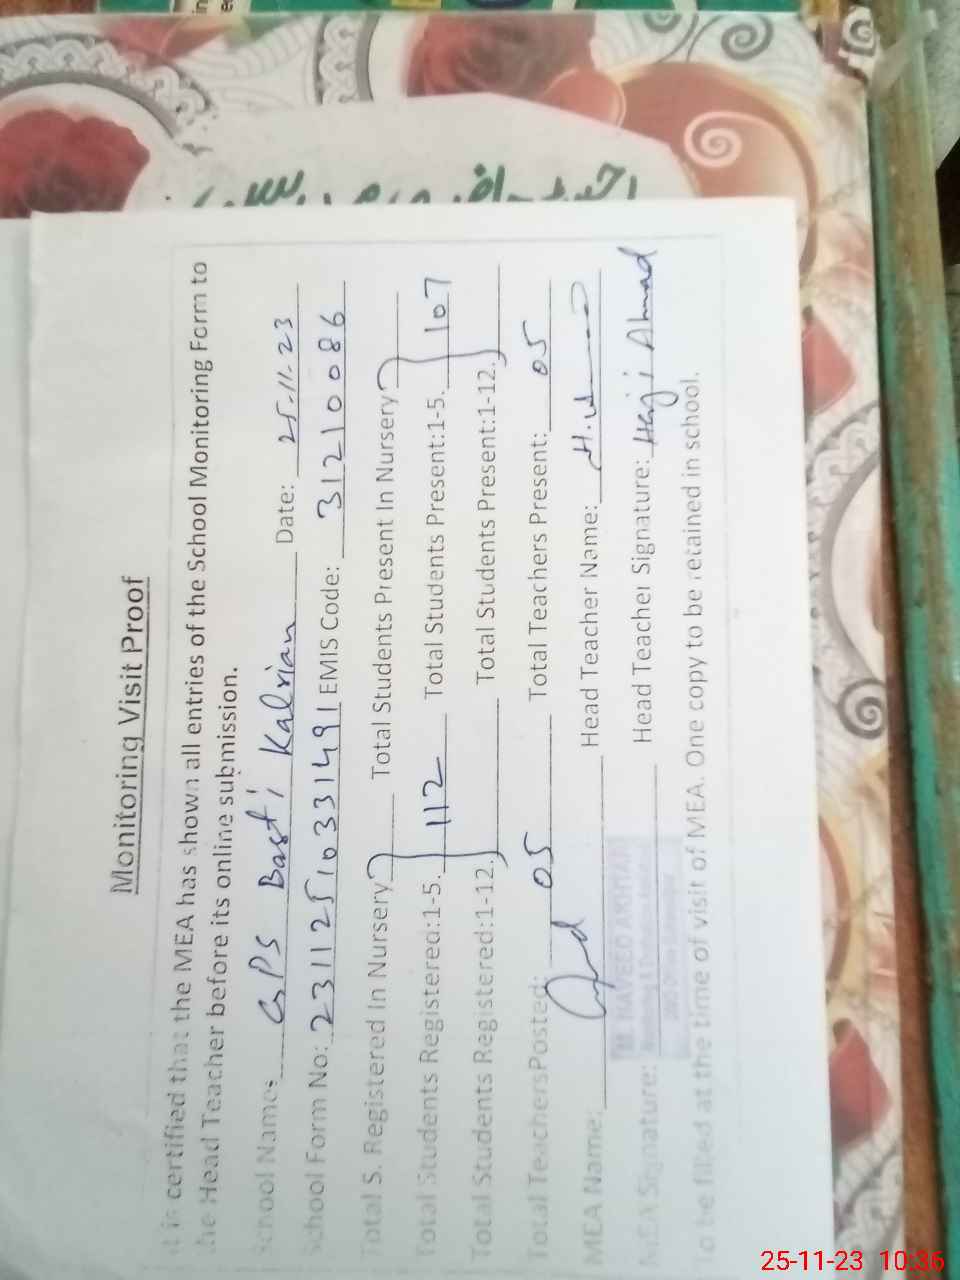 Monitoring Visit Proof
It is certified that the MEA has shown all entries of the School Monitoring Form to
the Head Teacher before its online submission.
School Name: GPS Basti Kalrian Date: 25-11-23
School Form No: 23112510331491 EMIS Code: 31210086
Total S. Registered In Nursery Total Students Present In Nursery
Total Students Registered:1-5. 112 Total Students Present:1-5. 107
Total Students Registered:1-12. Total Students Present:1-12.
Total TeachersPosted: 05 Total Teachers Present: 05
MEA Name: Head Teacher Name:
MEA Signature: Head Teacher Signature: Ahmad
NAVEED AKHTAR
To be filled at the time of visit of MEA. One copy to be retained in school.
25-11-23 10:36